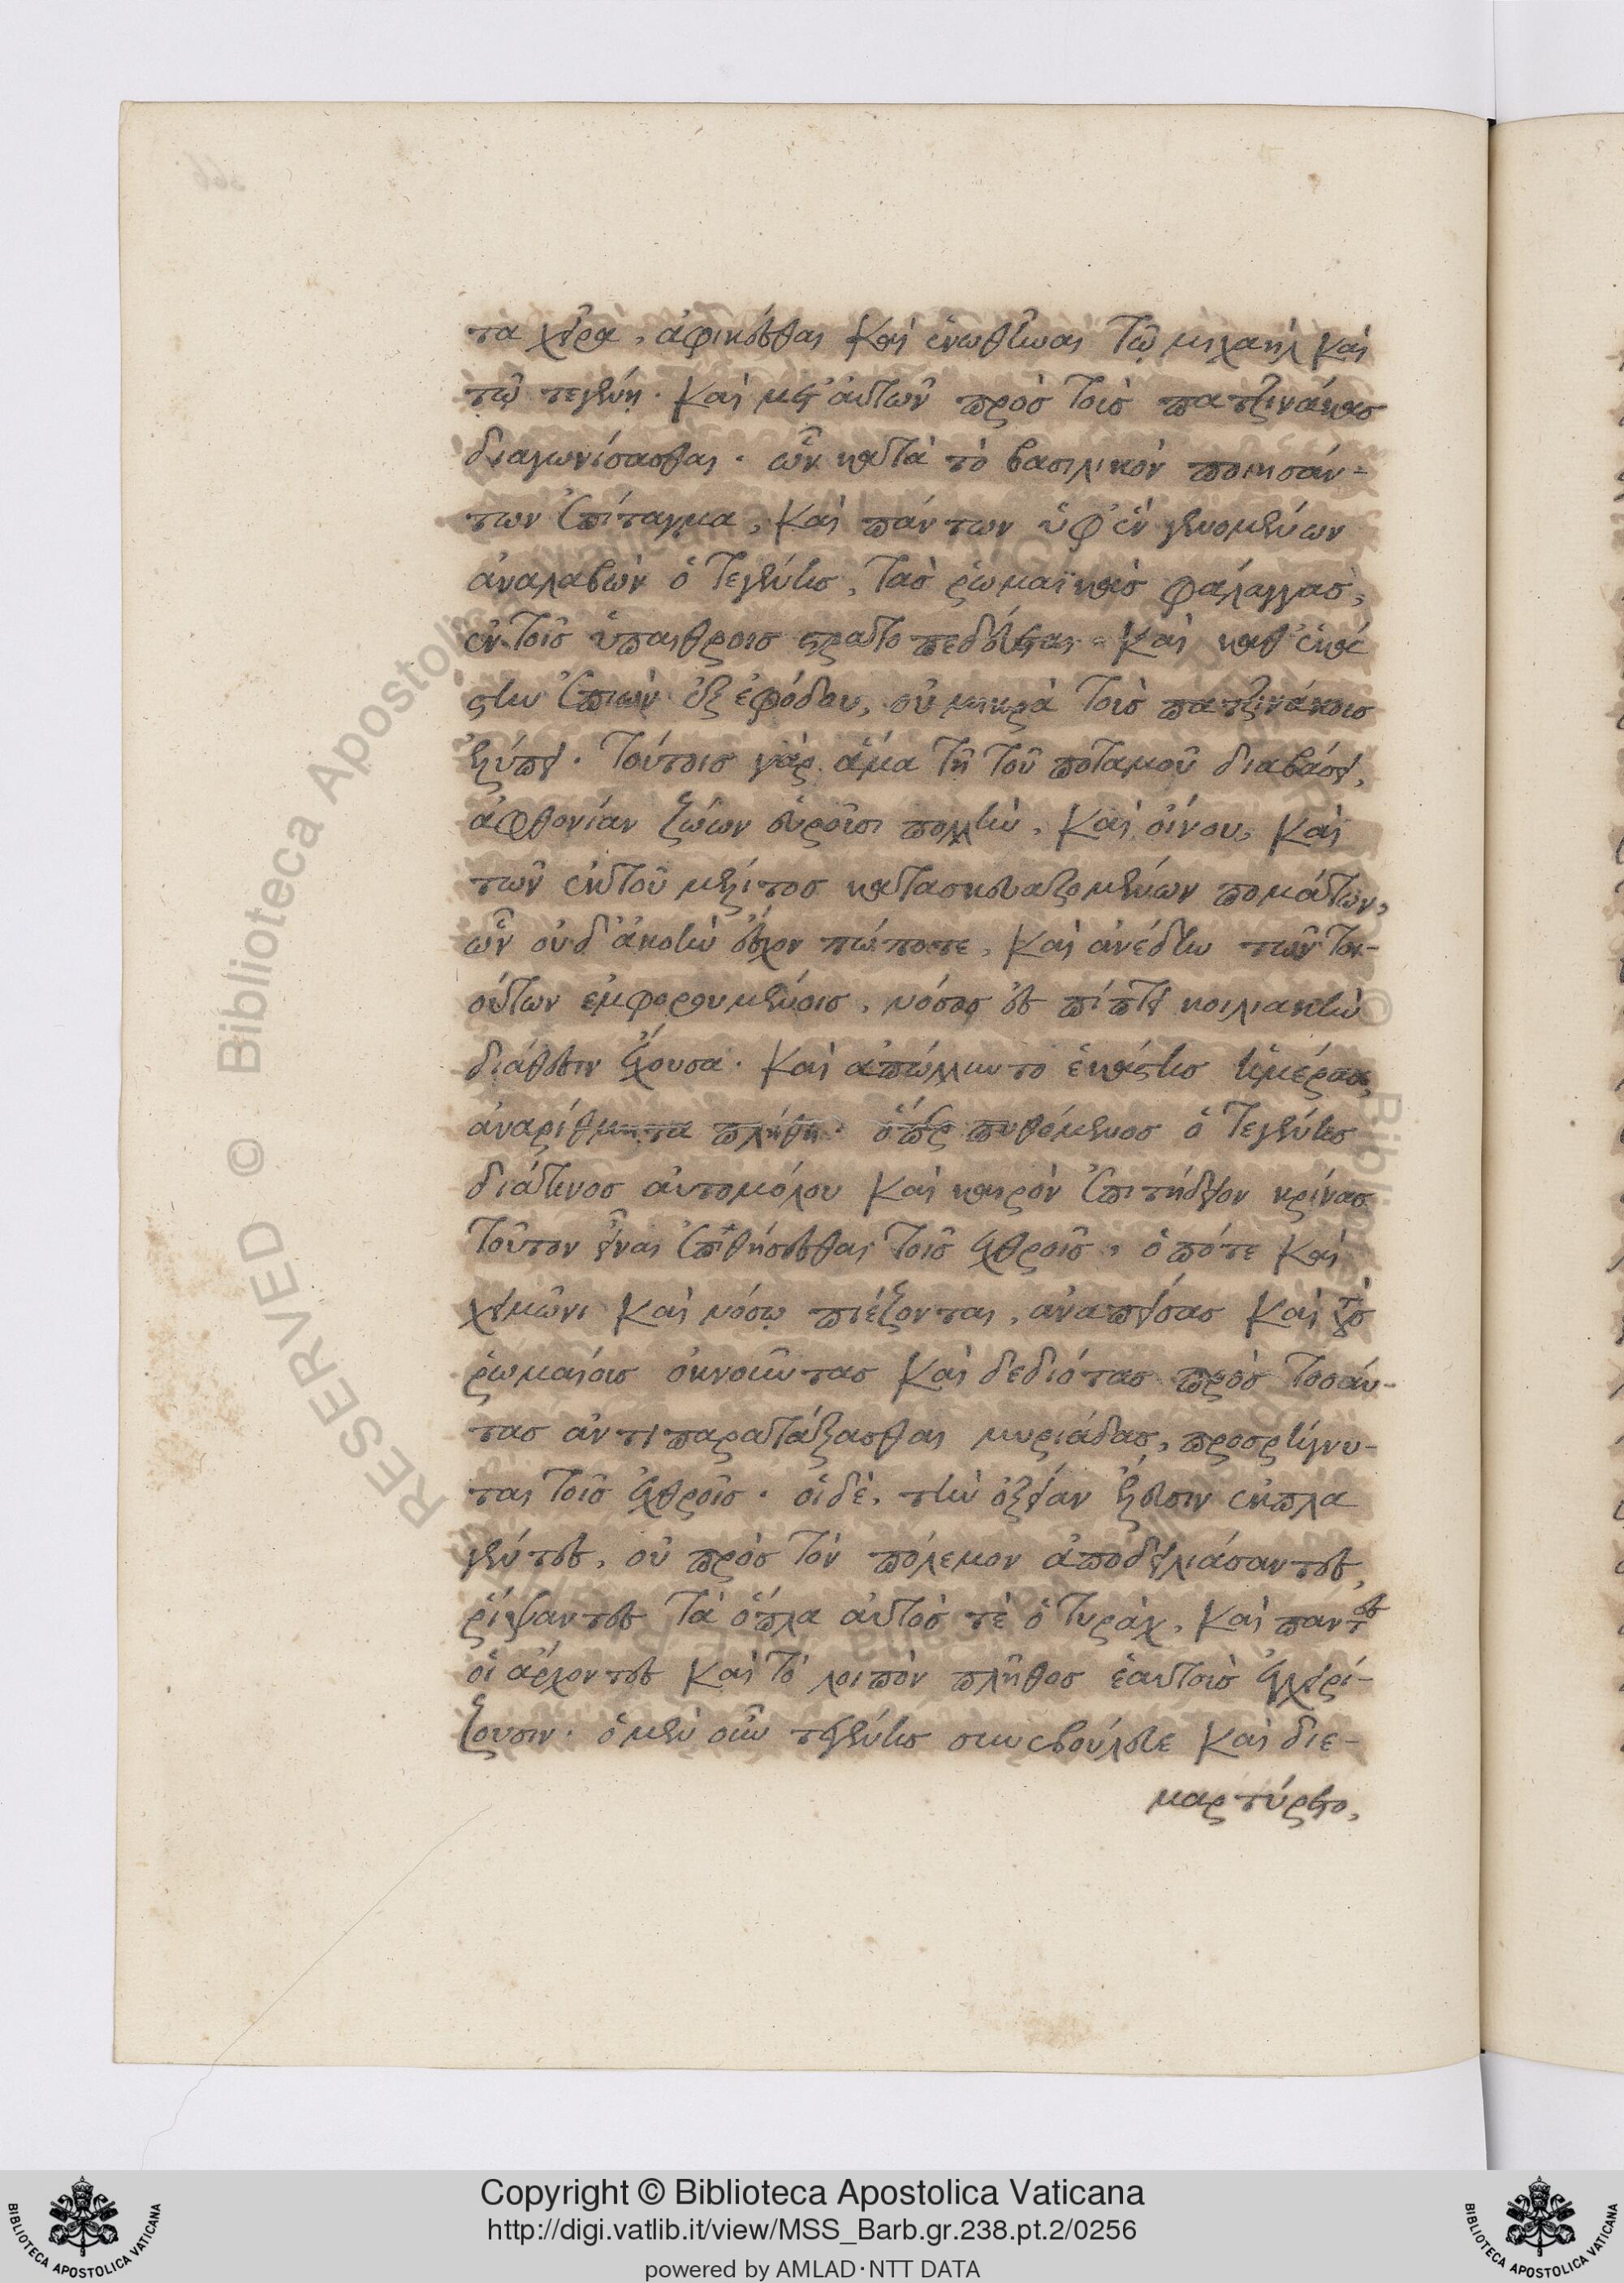 τα χεῖρα, ἀφικέσθαι καὶ ἑνωθῆναι τῷ μιχαὴλ καὶ
τῷ κεγένη. καὶ μετ' αὐτῶν πρὸς τοὺς πατζινάκας
διαγωνίσασθαι. ὧν κατὰ τὸ βασιλικὸν ποιησάν-
των ἐπίταγμα, καὶ πάντων ὑφ' ἓν γενομένων
ἀναλαβὼν ὁ κεγένης, τὰς ῥωμαϊκὰς φάλαγγας,
ἐν τοῖς ὑπαίθροις στρατοπεδεύεται. καὶ καθ' ἑκά
στην ἐπιὼν ἐξ ἐφόδου, οὐ μικρὰ τοὺς πατζινάκοις
ἐλύπει. τούτοις γὰρ ἅμα τῇ τοῦ ποταμοῦ διαβάσει,
ἀφθονίαν ζώων εὑροῦσι πολλὴν, καὶ οἴνου, καὶ
τῶν ἐκ τοῦ μέλιτος κατασκευαζομένων πομάτων,
ὧν οὐδ' ἀκοὴν ἔσχον πώποτε, καὶ ἀνέδην τῶν τοι-
ούτων ἐμφορουμένοις, νόσος ἐσπίπτει κοιλιακὴν
διάθεσιν ἔχουσα. καὶ ἀπώλλυντο ἑκάστης ἡμέρας,
ἀναρίθμητα πλήθη. ὅπερ πυθόμενος ὁ κεγένης
διά τινος αὐτομόλου καὶ καιρὸν ἐπιτήδειον κρίνας
τοῦτον εἶναι ἐπιθήσεσθαι τοῖς ἐχθροῖς, ὁπότε καὶ
χειμῶνι καὶ νόσῳ πιέζονται, ἀναπείσας καὶ τοὺς
ῥωμαίους ὀκνοῦντας καὶ δεδιότας πρὸς τοσαύ-
τας ἀντιπαρατάξασθαι μυριάδας, προσρήγνυ-
ται τοῖς ἐχθροῖς. οἱ δὲ, τὴν ὀξεῖαν ἔλευσιν ἐκπλα
γέντες, οὐ πρὸς τὸν πόλεμον ἀποδειλιάσαντες,
ῥίψαντες τὰ ὅπλα αὐτός τε ὁ τυρὰχ, καὶ πάντες
οἱ ἄρχοντες καὶ τὸ λοιπὸν πλῆθος ἑαυτοὺς ἐγχειρί-
ζουσιν. ὁ μὲν οὖν κεγένης συνεβούλευε καὶ διε-
μαρτύρετο,
Copyright © Biblioteca Apostolica Vaticana
http://digi.vatlib.it/view/MSS_Barb.gr.238.pt.2/0256
powered by AMLAD·NTT DATA